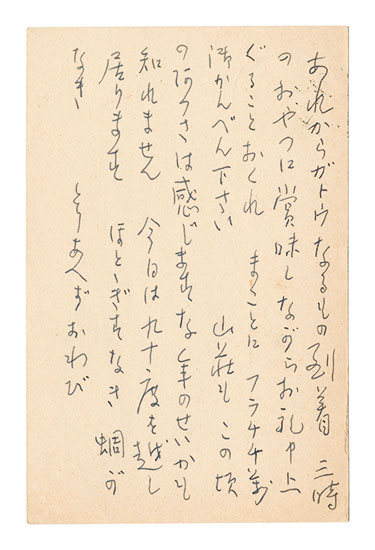 あれからガトウなるもの到着 三時
のおやつに賞味しながらお礼申上
ぐることおくれ まことにフラチ千萬
御かんべん下さい 山荘もこの頃
の阿つさは感じますな 年のせいかも
知れません 今日は九十度を越し
居ります ほととぎすなき 蜩が
なき とりあへずおわび